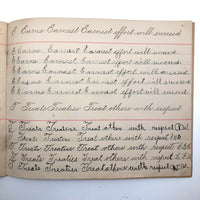 E Earns Earnest Earnest effort will succeed
E Earns Earnest Earnest effort will succeed
E Earns Earnest Earnest effort will succeed
E Earns Earnest Earnest effort will succeed
E Earns Earnest Earnest effort will succeed
E Earns Earnest Earnest effort will succeed
T Treats Treaties Treat others with respect
T Treats Treaties Treat others with respect
T Treats Treaties Treat others with respect
T Treats Treaties Treat others with respect
T Treats Treaties Treat others with respect
T Treats Treaties Treat others with respect
T Treats Treaties Treat others with respect